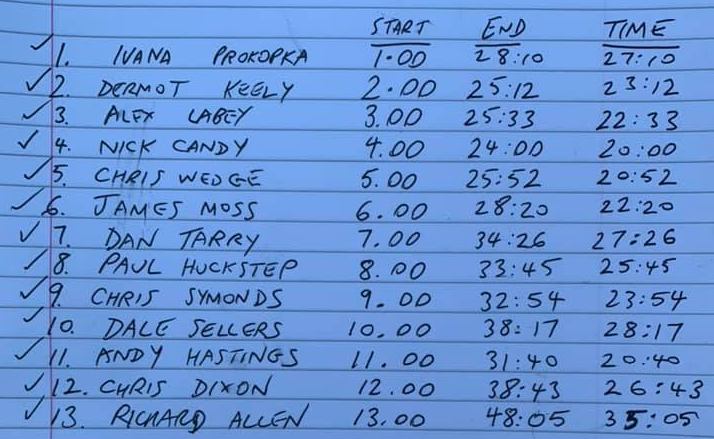 START END TIME
✓ 1. IVANA PROKOPKA 1.00 28:10 27:10
✓ 2. DERMOT KEELY 2.00 25:12 23:12
✓ 3. ALEX LABEY 3.00 25:33 22:33
✓ 4. NICK CANDY 4.00 24:00 20:00
✓ 5. CHRIS WEDGE 5.00 25:52 20:52
✓ 6. JAMES MOSS 6.00 28:20 22:20
✓ 7. DAN TARRY 7.00 34:26 27:26
✓ 8. PAUL HUCKSTEP 8.00 33:45 25:45
✓ 9. CHRIS SYMONDS 9.00 32:54 23:54
✓ 10. DALE SELLERS 10.00 38:17 28:17
✓ 11. ANDY HASTINGS 11.00 31:40 20:40
✓ 12. CHRIS DIXON 12.00 38:43 26:43
✓ 13. RICHARD ALLEN 13.00 48:05 35:05